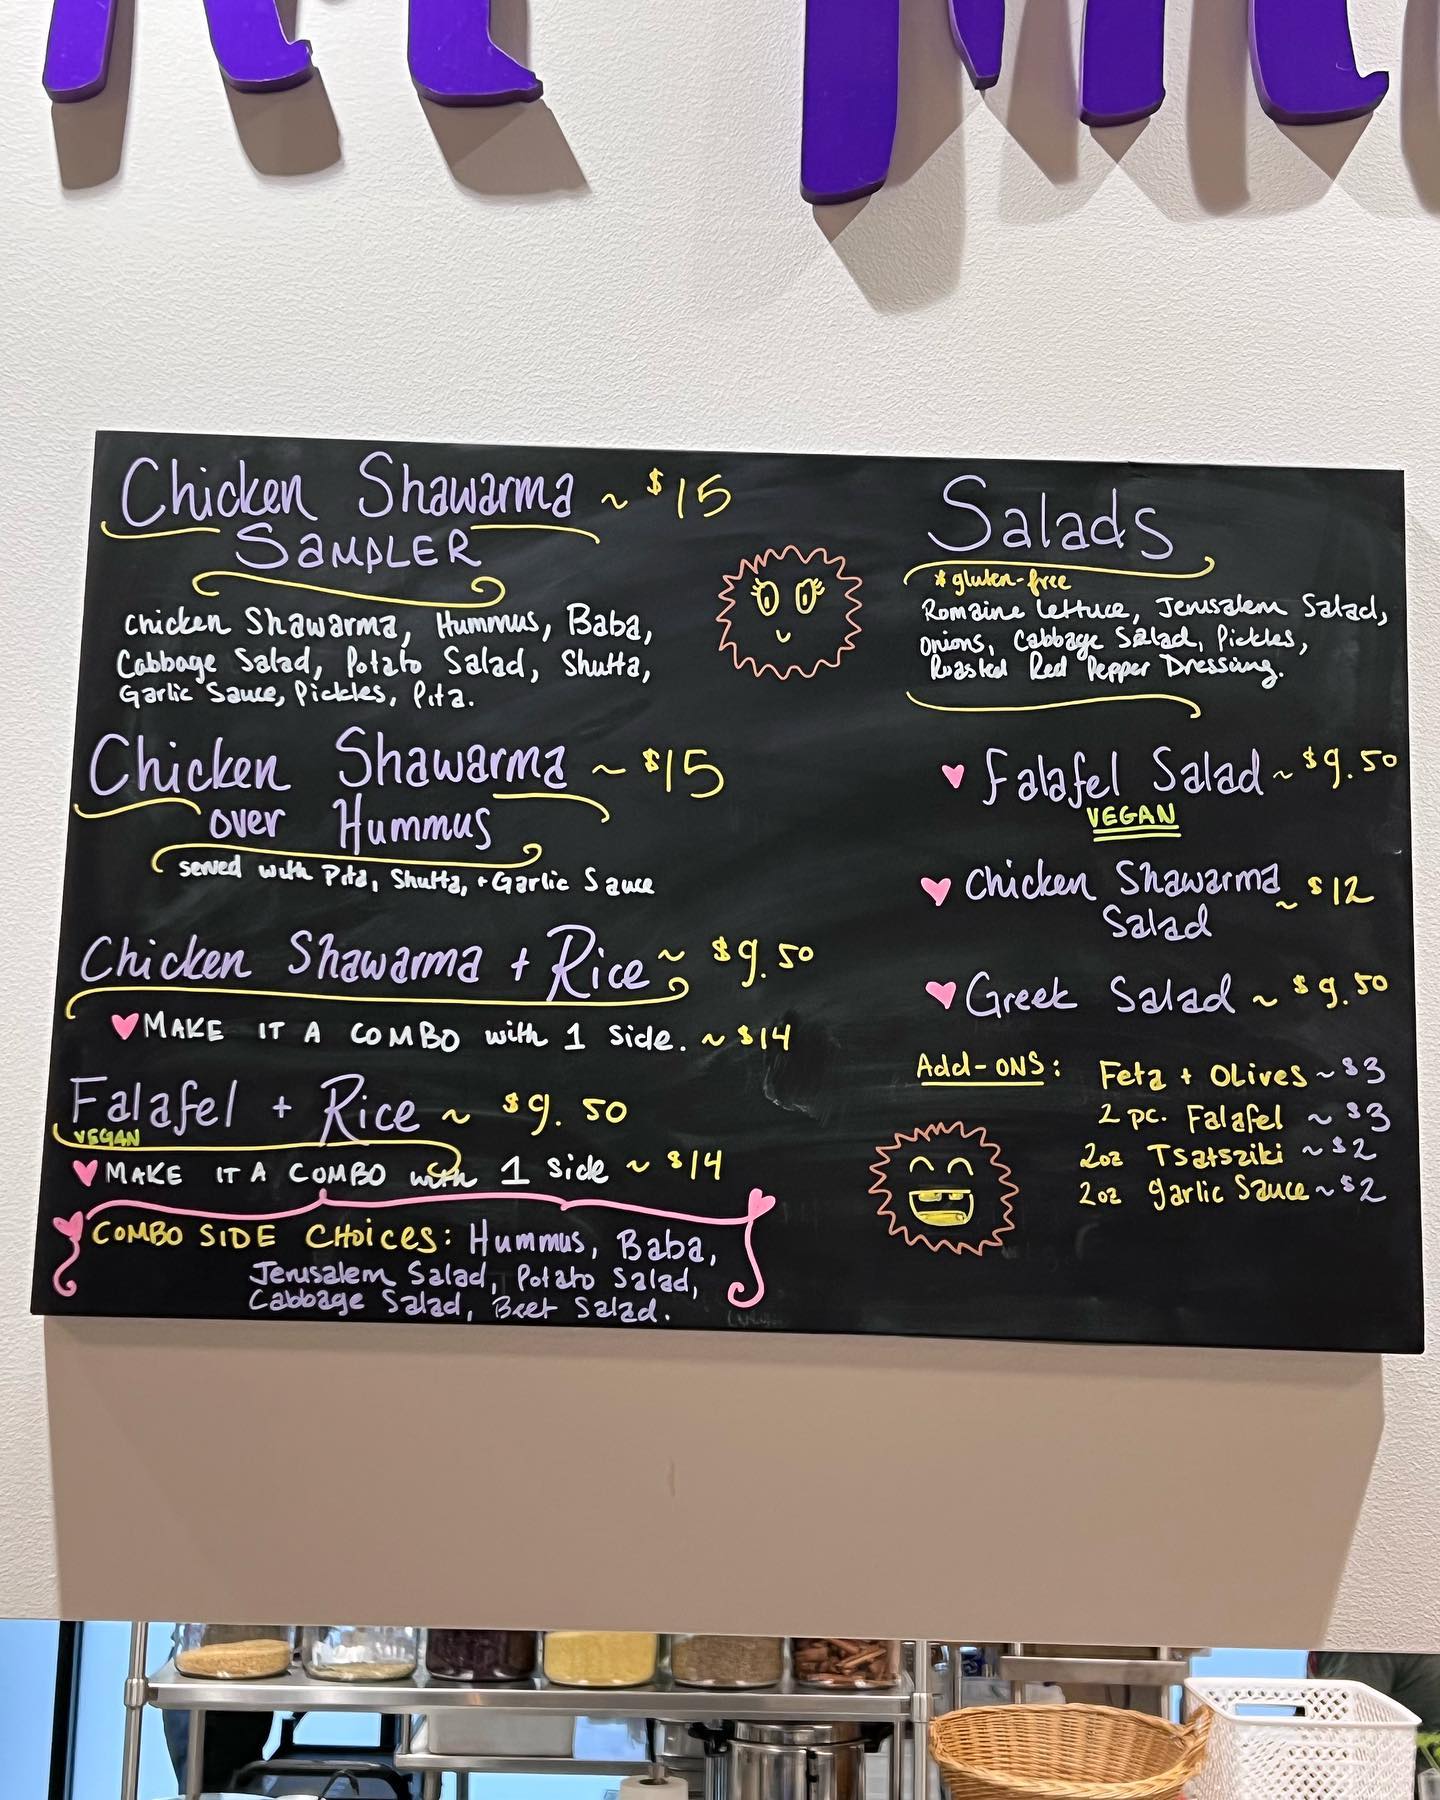 Chicken Shawarma ~ $15
SAMPLER
chicken Shawarma, Hummus, Baba,
Cabbage Salad, Potato Salad, Shutta,
Garlic Sauce, Pickles, Pita.
Chicken Shawarma ~ $15
over Hummus
served with Pita, Shutta, + Garlic Sauce
Chicken Shawarma + Rice ~ $9.50
MAKE IT A COMBO with 1 Side. ~ $14
Falafel + Rice ~ $9.50
VEGAN
MAKE IT A COMBO with 1 Side ~ $14
COMBO SIDE CHOICES: Hummus, Baba,
Jerusalem Salad, Potato Salad,
Cabbage Salad, Beet Salad.
Salads
* gluten-free
Romaine Lettuce, Jerusalem Salad,
Onions, Cabbage Salad, Pickles,
Roasted Red Pepper Dressing.
Falafel Salad ~ $9.50
VEGAN
Chicken Shawarma ~ $12
Salad
Greek Salad ~ $9.50
Add-ONS: Feta + OLives ~ $3
2 pc. Falafel ~ $3
2oz Tsatsziki ~ $2
2oz garlic Sauce ~ $2